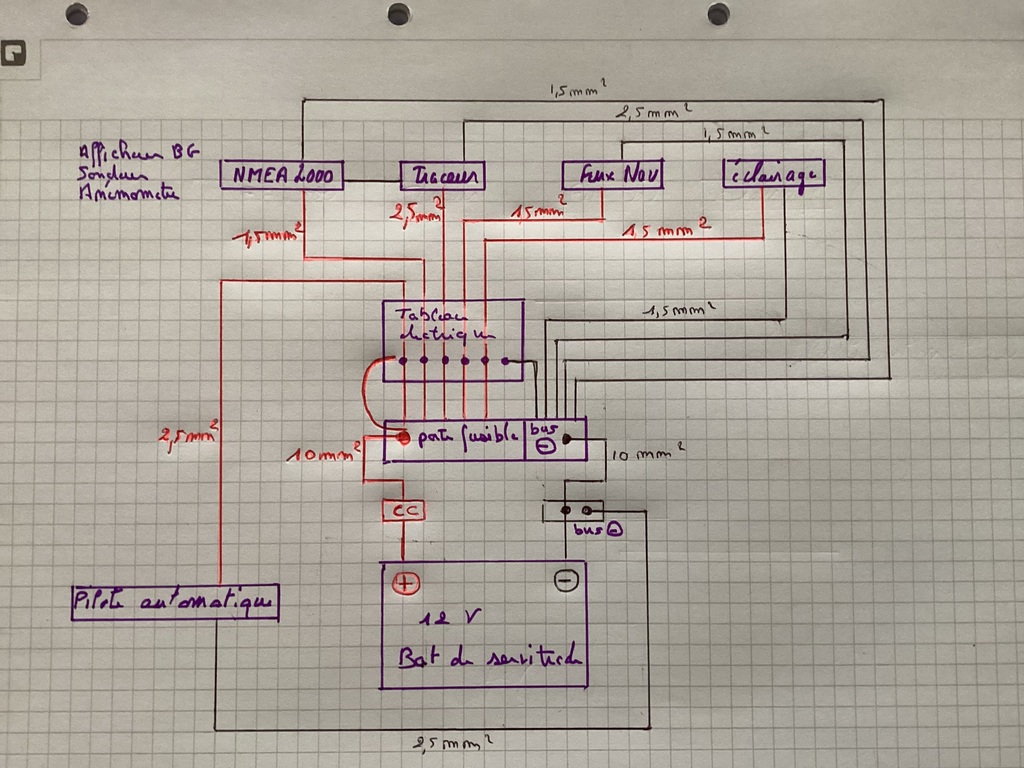 1,5mm²
2,5mm²
1,5mm²
Afficheur BG
Sondeur
Anémomètre
NMEA 2000
Traceur
Feux Nav
éclairage
2,5mm²
1,5mm²
1,5mm²
1,5mm²
Tableau
électrique
1,5mm²
2,5mm²
10mm²
porte fusible
bus
⊖
10mm²
CC
bus ⊖
+
−
Pilote automatique
12 V
Bat de servitude
2,5mm²